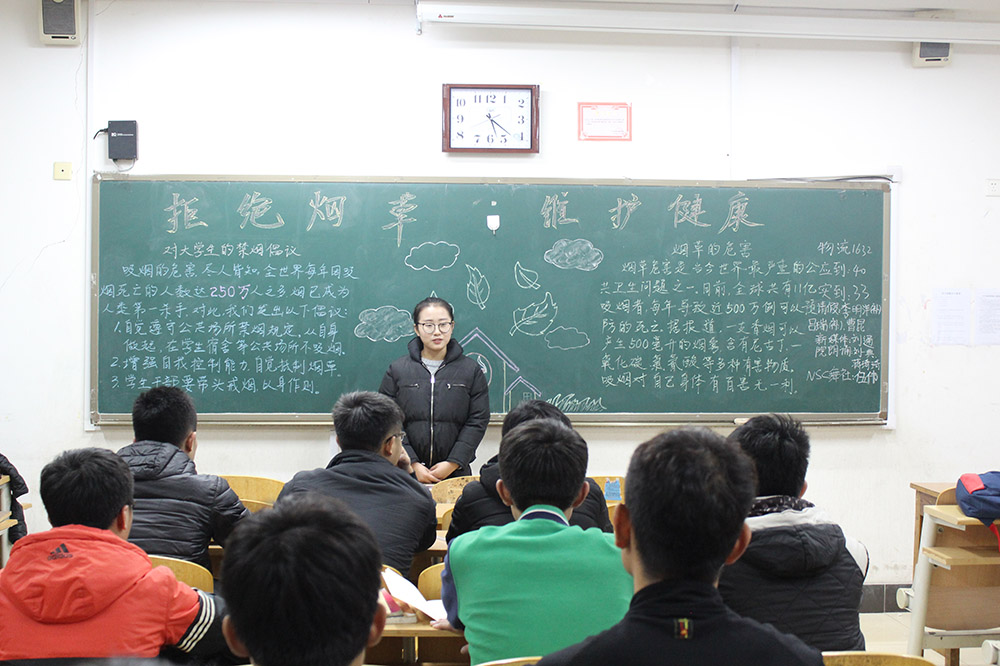 拒绝烟草 维护健康
对大学生的禁烟倡议
吸烟的危害尽人皆知,全世界每年因吸
烟死亡的人数达250万人之多,烟已成为
人类第一杀手.对此,我们提出以下倡议:
1.自觉遵守公共场所禁烟规定,从自身
做起,在学生宿舍等公共场所不吸烟.
2.增强自我控制能力,自觉抵制烟草.
3.学生干部要带头戒烟以身作则.
烟草的危害
烟草危害是当今世界最严重的公
共卫生问题之一.目前,全球共有11亿
吸烟者,每年导致近500万例可以预
防的死亡.据报道,一支香烟可以
产生500毫升的烟雾,含有尼古丁、一
氧化碳、氰氢酸等多种有害物质.
吸烟对自己身体有百害无一利.
物流1632
应到:40
实到:33
新媒体:刘通
adidas